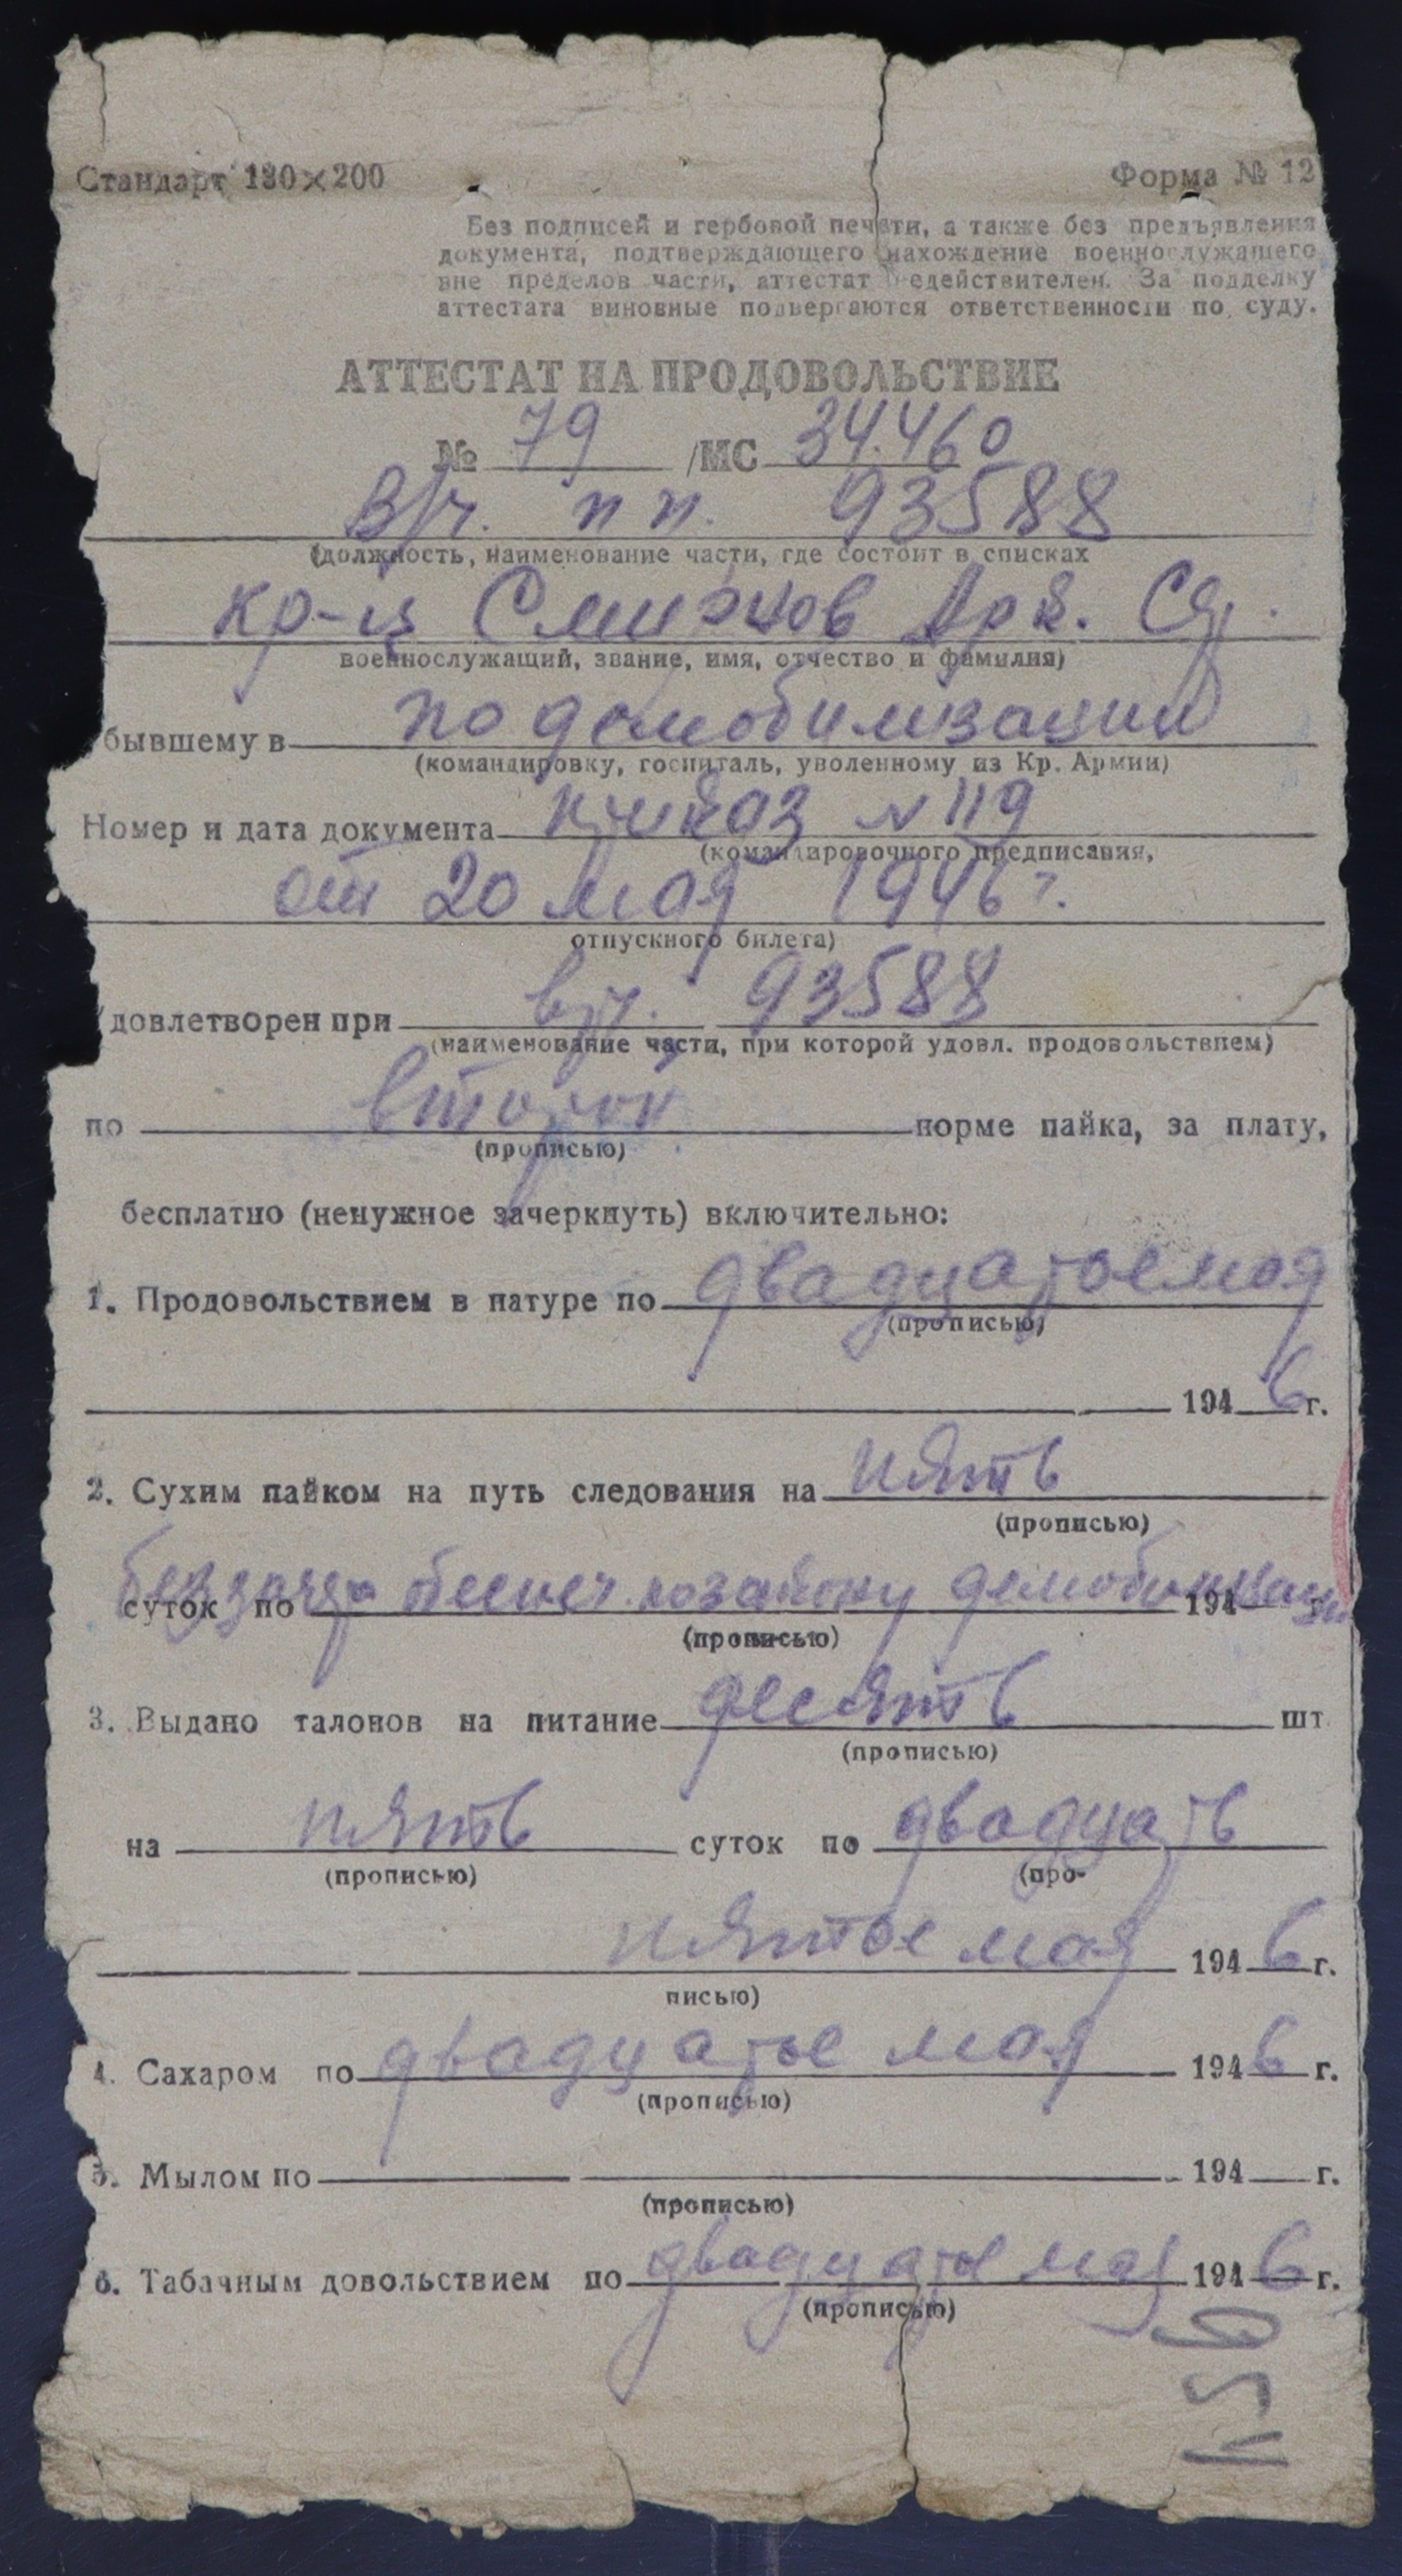 Стандарт 130×200 Форма № 12
Без подписей и гербовой печати, а также без предъявления
документа, подтверждающего нахождение военнослужащего
вне пределов части, аттестат недействителен. За подделку
аттестата виновные подвергаются ответственности по суду.
АТТЕСТАТ НА ПРОДОВОЛЬСТВИЕ
№ 79 /МС 34.460
В/ч. пп. 93588
(должность, наименование части, где состоит в списках
кр-ц Смирнов Арк. Ся.
военнослужащий, звание, имя, отчество и фамилия)
бывшему в по демобилизации
(командировку, госпиталь, уволенному из Кр. Армии)
Номер и дата документа приказ № 119
(командировочного предписания,
от 20 мая 1946 г.
отпускного билета)
довлетворен при в/ч. 93588
(наименование части, при которой удовл. продовольствием)
по второй норме пайка, за плату,
(прописью)
бесплатно (ненужное зачеркнуть) включительно:
1. Продовольствием в натуре по двадцатое мая
(прописью)
1946 г.
2. Сухим пайком на путь следования на пять
(прописью)
суток по 194 г.
(прописью)
3. Выдано талонов на питание десять шт
(прописью)
на пять суток по двадцать
(прописью) (про-
пятое мая 1946 г.
писью)
4. Сахаром по двадцатое мая 1946 г.
(прописью)
5. Мылом по 194 г.
(прописью)
6. Табачным довольствием по двадцатое мая 1946 г.
(прописью)